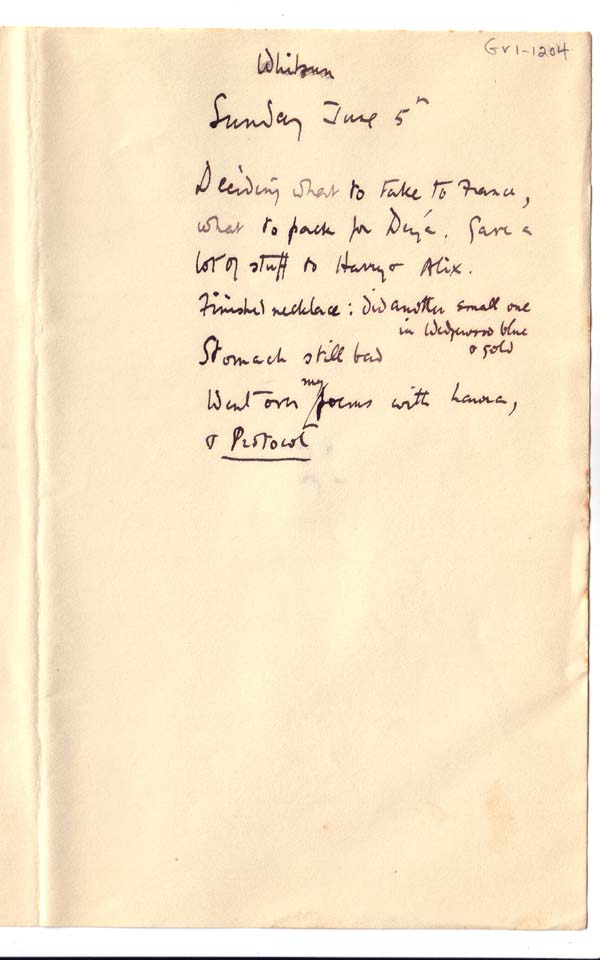 GV1-1204
Whitsun
Sunday June 5th
Deciding what to take to France,
what to pack for Deyá. Gave a
lot of stuff to Harry & Alix.
Finished necklace: did another small one
in Wedgewood blue
& gold
Stomach still bad
Went over my poems with Laura,
& Protocol